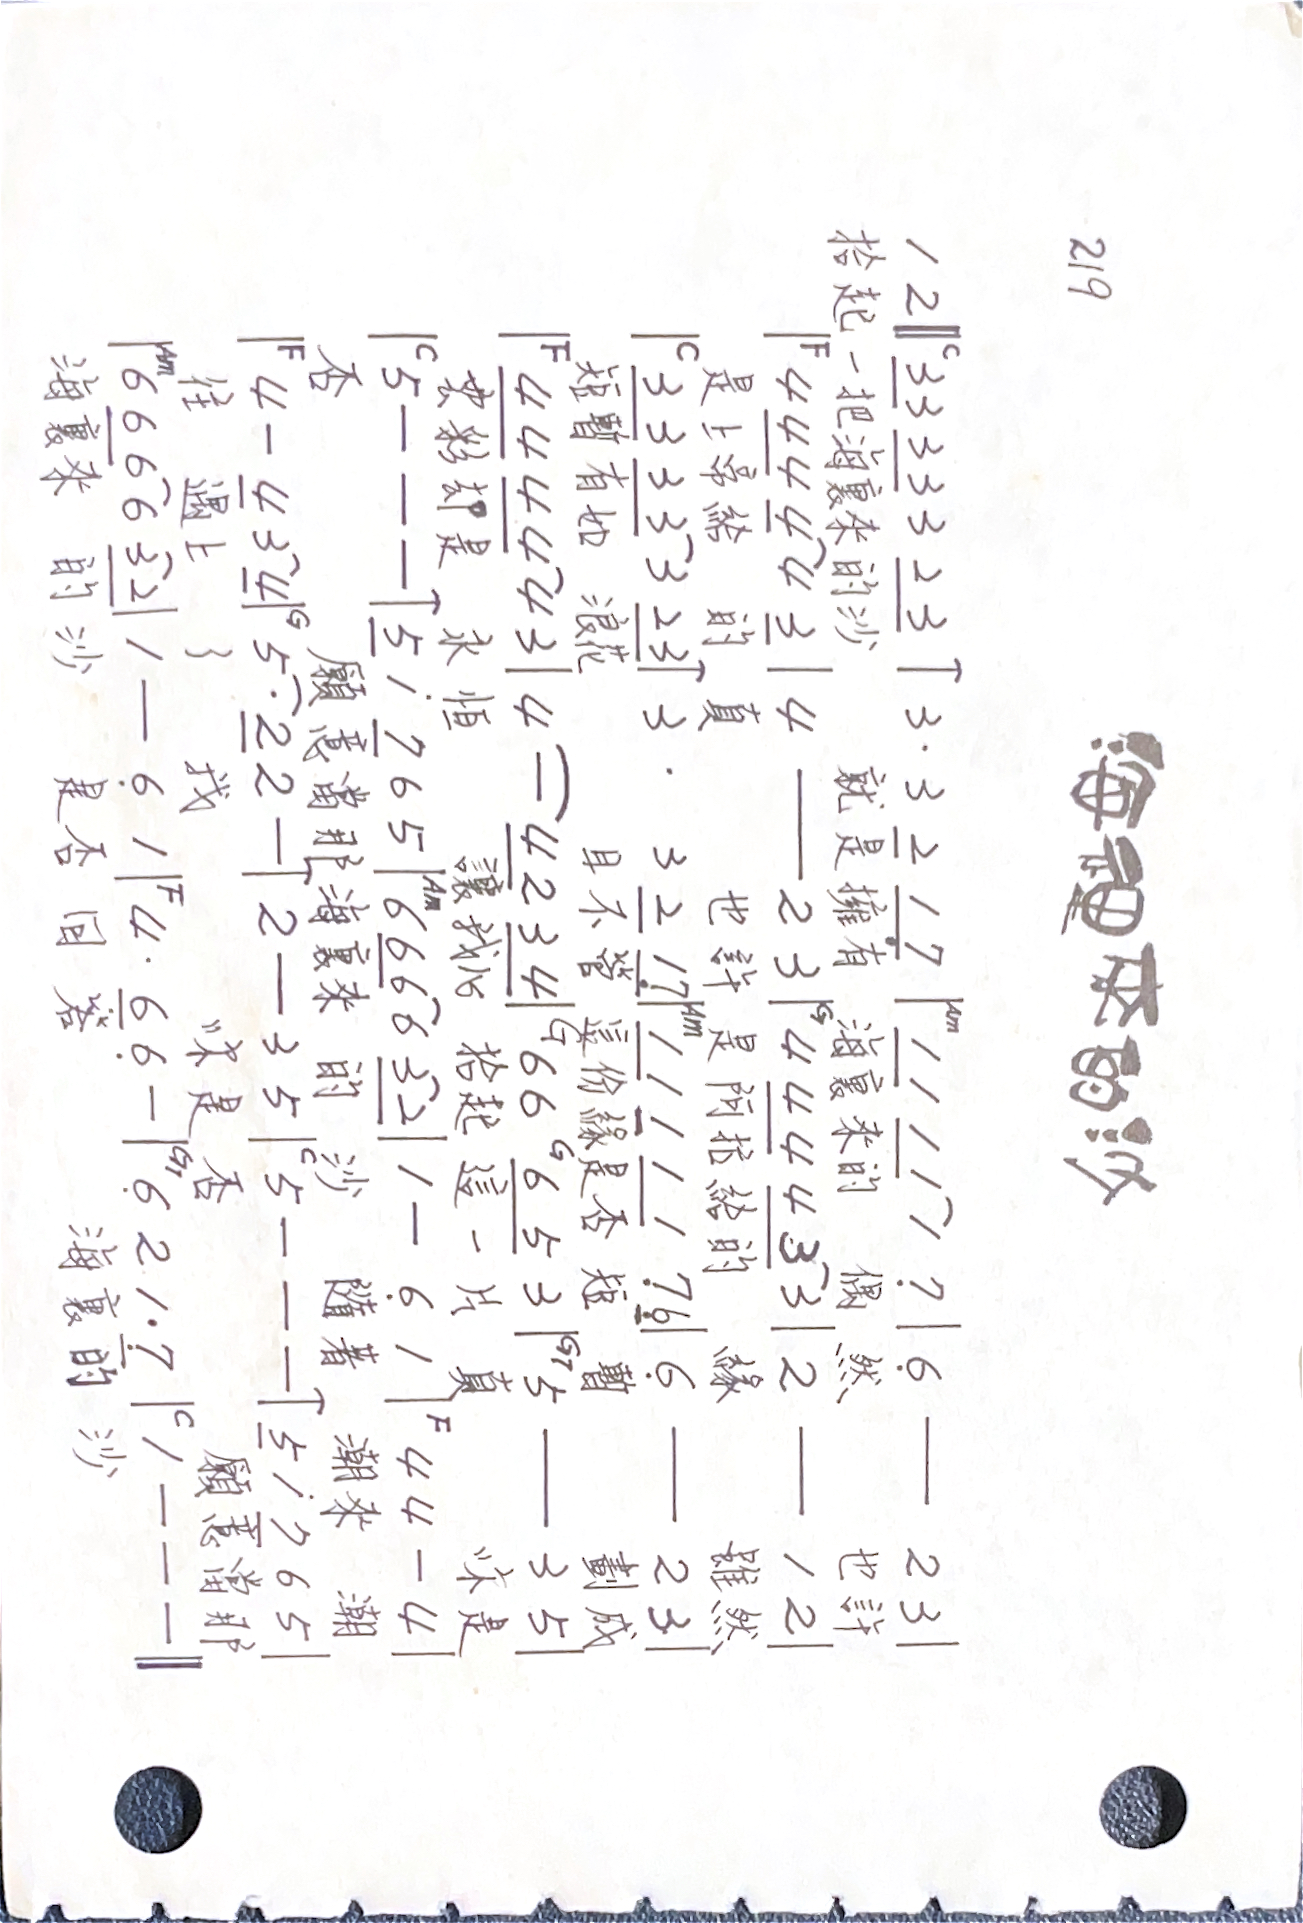 海裡來的沙
219
1 2 ‖ C 33 33 3 23 | 3· 3 2 17 | Am 11 11 1 7 | 6 — 2 3 |
拾起一把海裏來的沙 就是擁有 海裏來的 偶然 也許
| F 4 44 4 4 3 | 4 — 2 3 | G 4 44 43 3 | 2 — 1 2 |
是上帝給 的真 也許 是阿拉給的 緣 雖然
| C 33 33 3 23 | 3· 3 2 17 | Am 11 1 11 76 | 6 — 2 3 |
短暫有如 浪花 且不管 這份緣是否 短暫 劃成
| F 44 44 4 3 | 4 — 42 34 | G 66 G 65 3 | G7 5 — 3 5 |
雲彩却是 永恒 讓我心 拾起這一片真 咏是
| C 5 — — — | 5 1 7 6 5 | Am 6 66 6 32 | 1 — 6 1 | F 4 4 — 4 |
否 願意當那海裏來 的 沙 隨著 潮來 潮
| F 4 — 4 3 4 | G 5· 2 2 — | 2 — 3 5 | C 5 — — — | 5 1 7 6 5 |
往 遇上 了 我 咏是否 願意當那
| Am 6 66 6 32 | 1 — 6 1 | F 4· 6 6 — | G7 6 2 1· 7 | C 1 — — — ‖
海裏來 的沙 是否回答 海裏的 沙